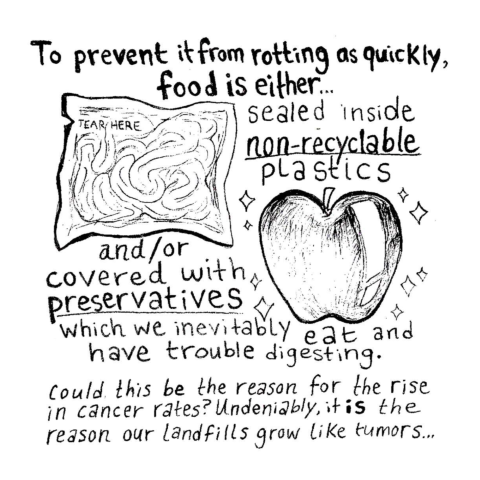 To prevent it from rotting as quickly,
food is either...
TEAR HERE
sealed inside
non-recyclable
plastics
and/or
covered with
preservatives
which we inevitably eat and
have trouble digesting.
Could this be the reason for the rise
in cancer rates? Undeniably, it is the
reason our landfills grow like tumors...